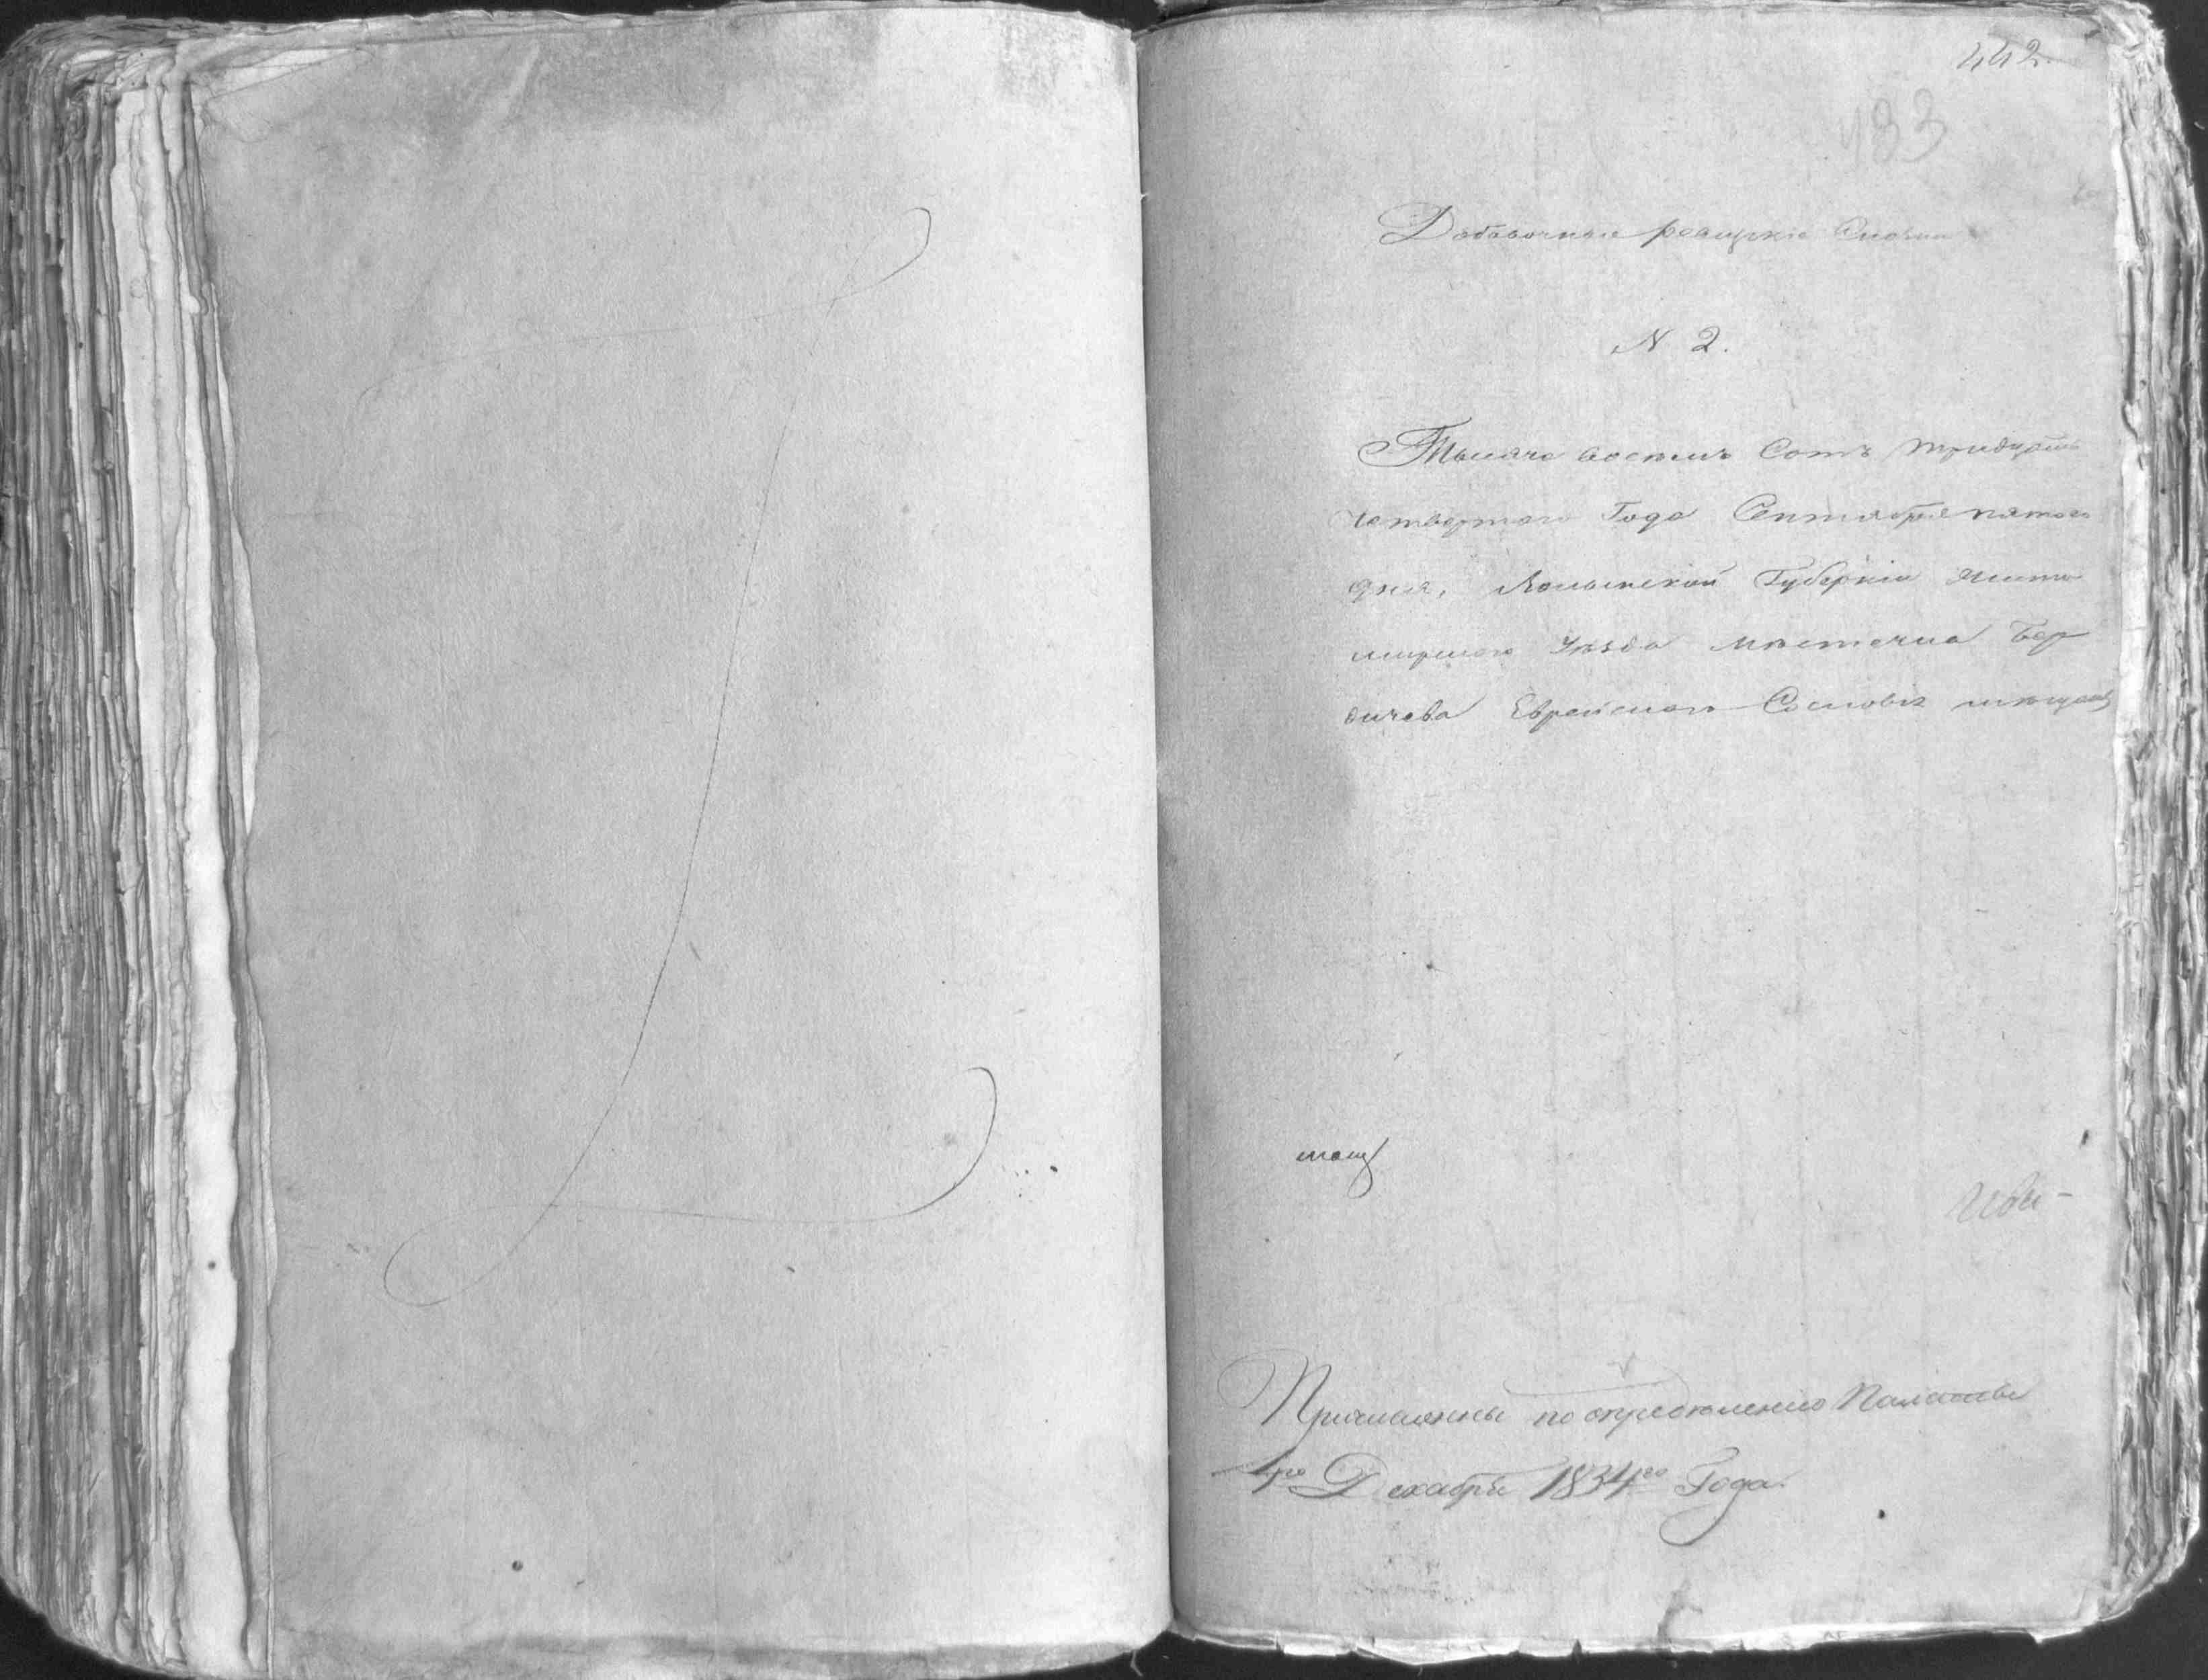 442.
483
Добавочныя ревизскія Сказки
N 2.
Тысяча восемь Сотъ тридцать
четвертого Года Сентября пятого
дня, Волынской Губерніи Жито
мирского Уѣзда мѣстечка Бер
дичева Еврейского Сословія мѣщанъ
Причисленные по опредѣленію Палаты
4го Декабря 1834го Года.